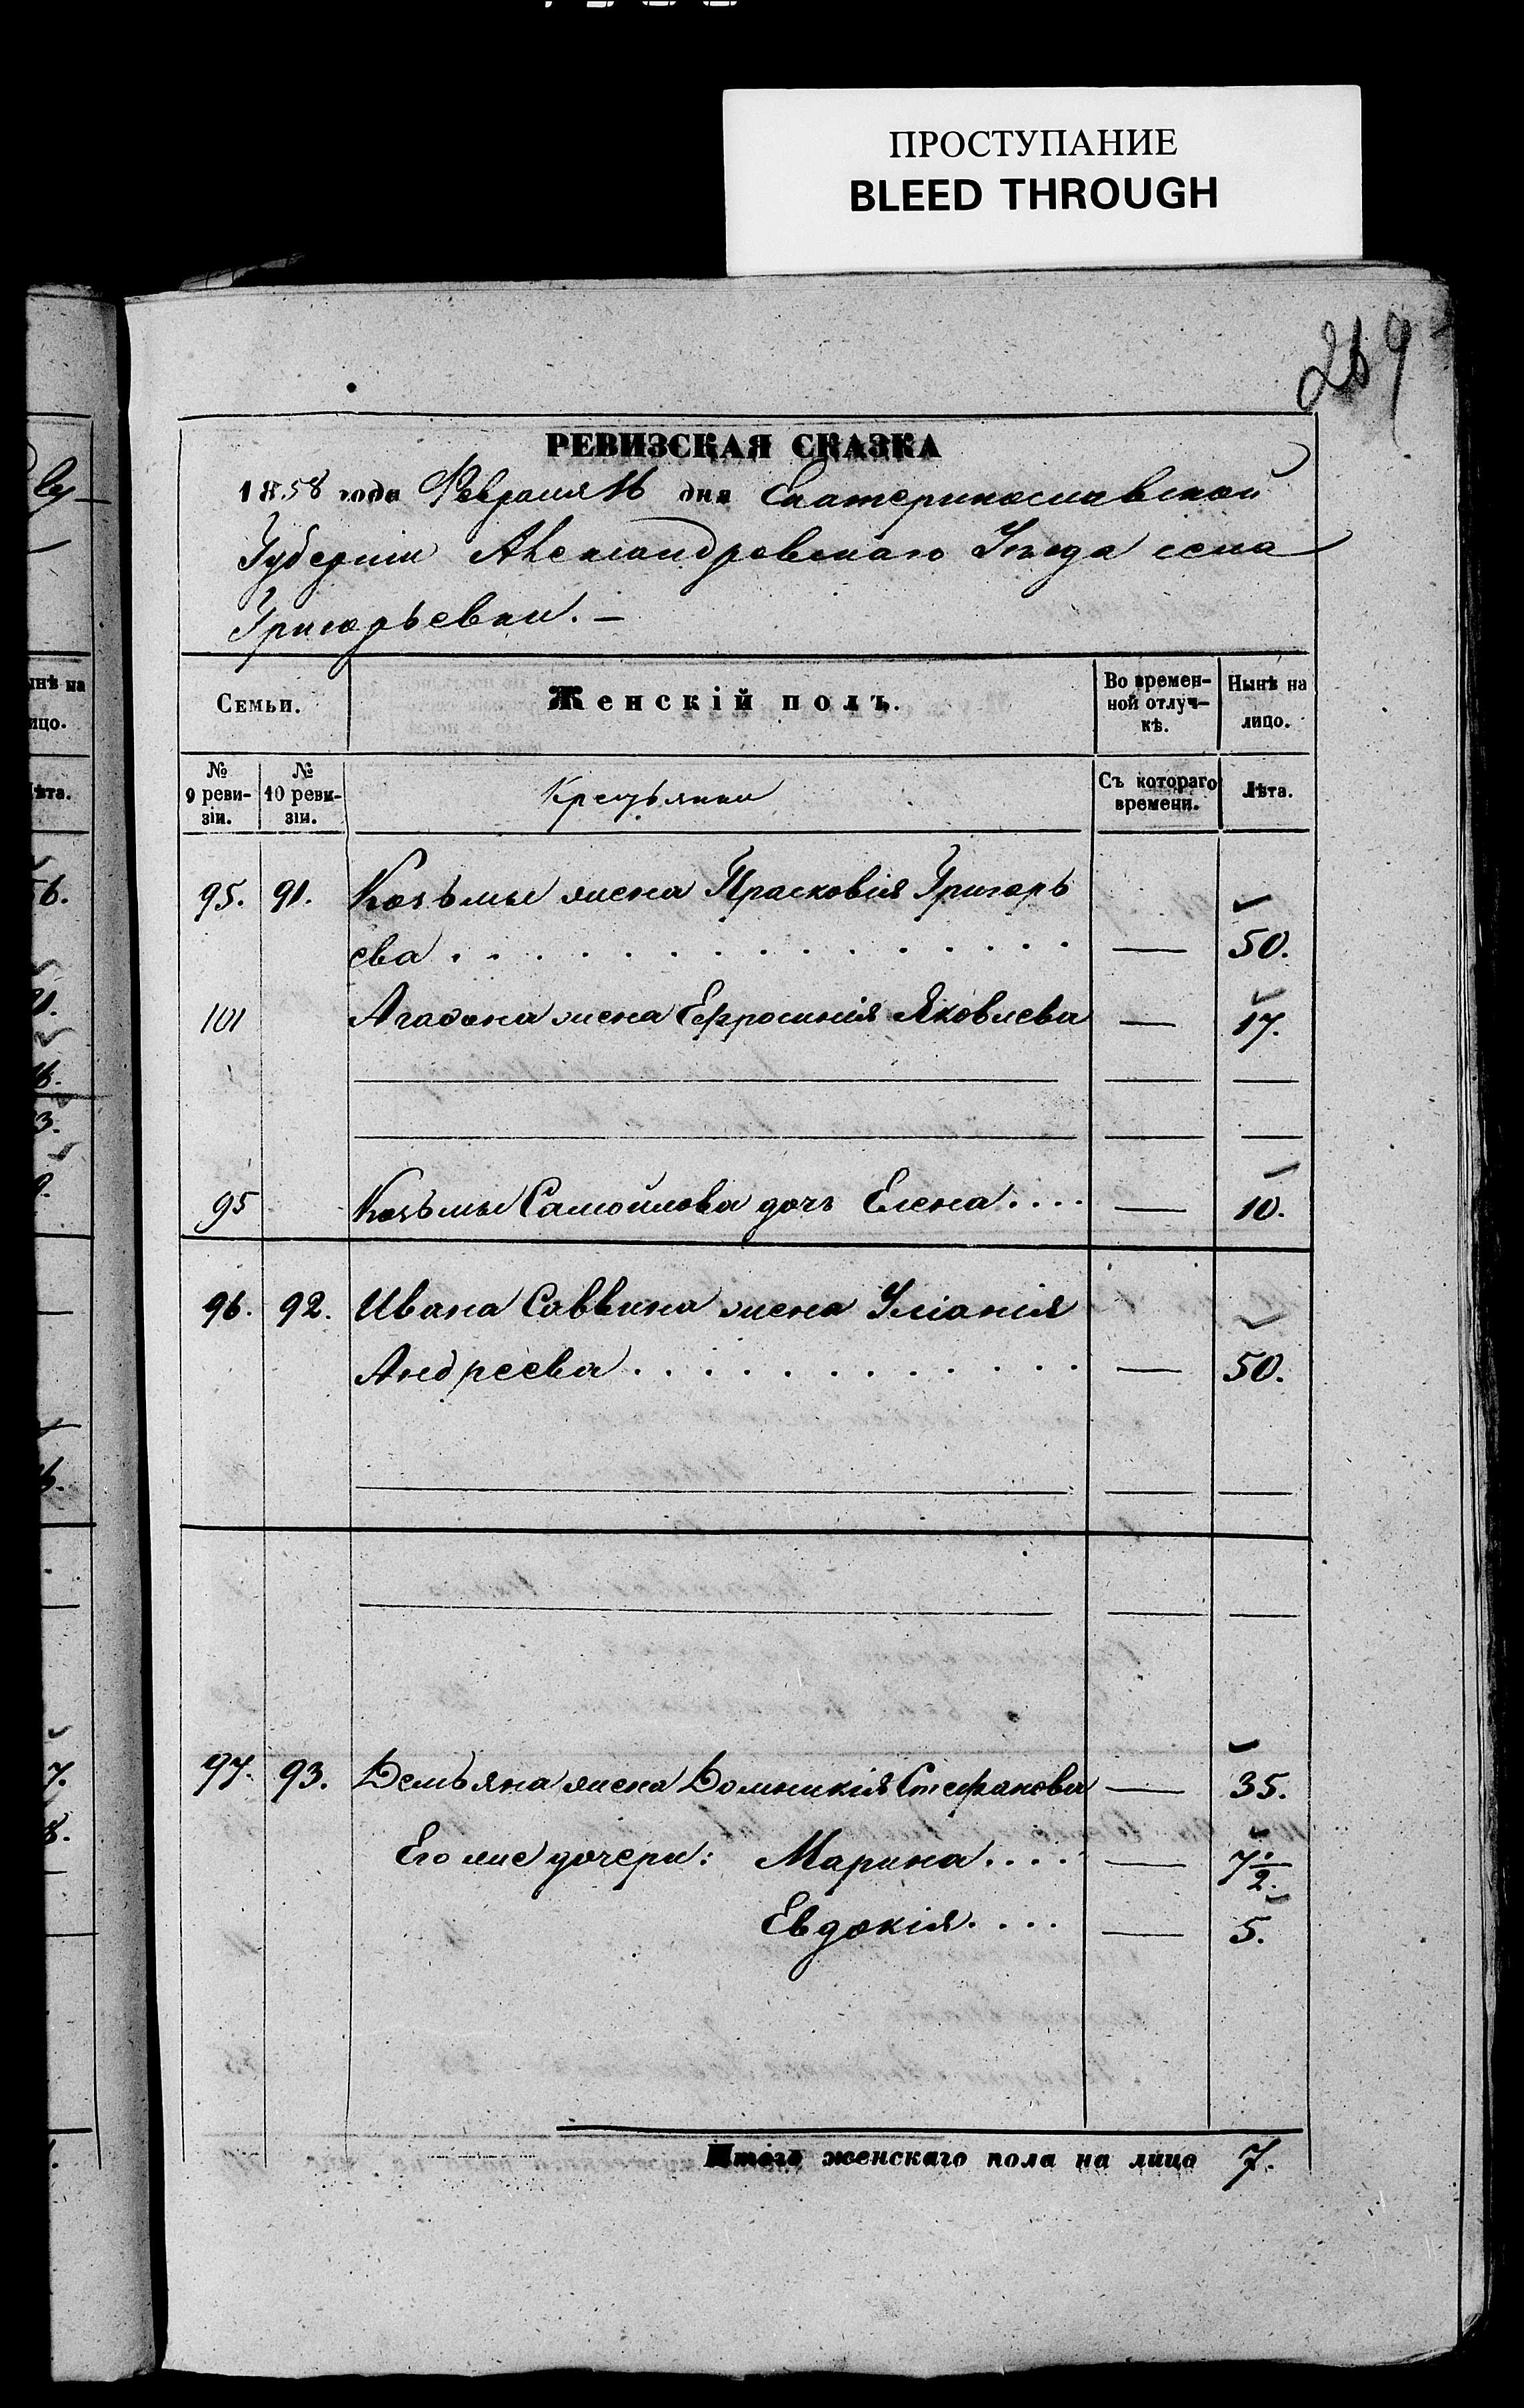 ПРОСТУПАНИЕ
BLEED THROUGH
269
РЕВИЗСКАЯ СКАЗКА
1858 года Февраля 16 дня Екатеринославской
Губерніи Александровскаго Уѣзда села
Григорьевки. —
Семьи.
Женскій полъ.
Во времен-
ной отлуч-
кѣ.
Нынѣ на
лицо.
№
9 реви-
зіи.
№
10 реви-
зіи.
Крестьянки
Съ котораго
времени.
Лѣта.
95. 91. Козьмы жена Прасковія Григорь
ева . . . . . . . . . . . . . . . — 50.
101 Агафона жена Ефросинія Яковлева — 17.
95 Козьмы Самойлова дочь Елена . . . . — 10.
96. 92. Ивана Саввина жена Уліанія
Андреева . . . . . . . . . . . . — 50.
97. 93. Демьяна жена Домникія Стефанова — 35.
Его же дочери: Марина . . . . — 7 1/2.
Евдокія . . . . — 5.
Итого женскаго пола на лицо 7.